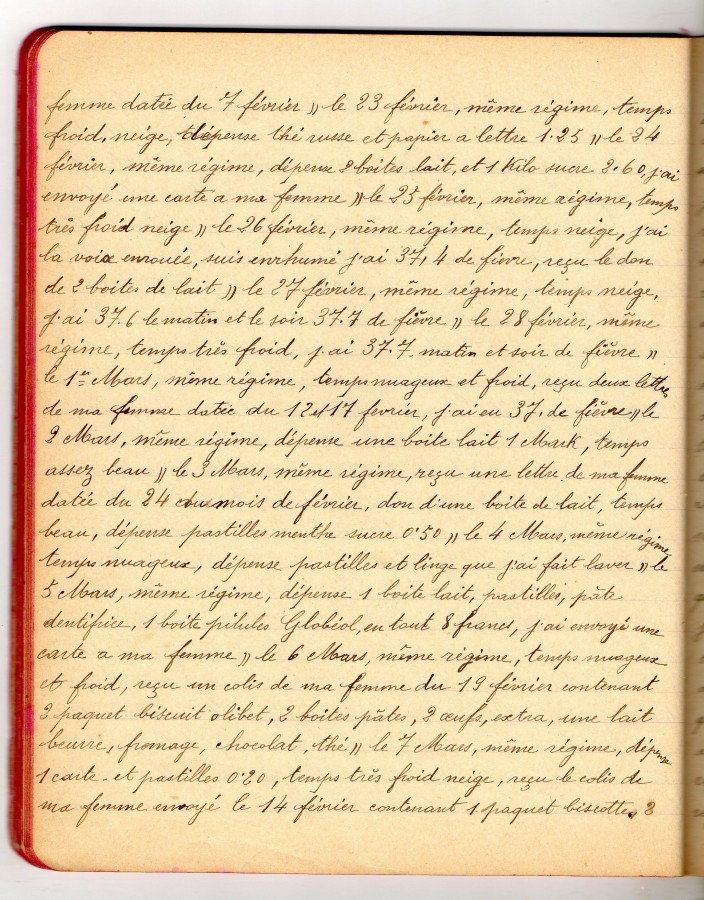 femme datée du 7 février " le 23 février, même régime, temps
froid, neige, dépense thé russe et papier a lettre 1.25 " le 24
février, même régime, dépense 2 boites lait, et 1 Kilo sucre 2.60, j'ai
envoyé une carte a ma femme " le 25 février, même régime, temps
très froid neige " le 26 février, même régime, temps neige, j'ai
la voix enrouée, suis enrhumé j'ai 37,4 de fièvre, reçu le don
de 2 boites de lait " le 27 février, même régime, temps neige,
j'ai 37.6 le matin et le soir 37.7 de fièvre " le 28 février, même
régime, temps très froid, j'ai 37.7 matin et soir de fièvre "
le 1er Mars, même régime, temps nuageux et froid, reçu deux lettres
de ma femme datée du 12 et 17 fevrier, j'ai eu 37, de fièvre " le
2 Mars, même régime, dépense une boite lait 1 Mark, temps
assez beau " le 3 Mars, même régime, reçu une lettre de ma femme
datée du 24 du mois de février, don d'une boite de lait, temps
beau, dépense pastilles menthe sucre 0.50 " le 4 Mars, même régime,
temps nuageux, dépense pastilles et linge que j'ai fait laver " le
5 Mars, même régime, dépense 1 boite lait, pastilles, pâte
dentifrice, 1 boite pilules Globéol, en tout 8 francs, j'ai envoyé une
carte a ma femme " le 6 Mars, même régime, temps nuageux
et froid, reçu un colis de ma femme du 19 février contenant
2 paquet biscuit olibet, 2 boites pâtes, 2 œufs, extra, une lait
beurre, fromage, chocolat, thé " le 7 Mars, même régime, dépense
1 carte et pastilles 0.20, temps très froid neige, reçu le colis de
ma femme envoyé le 14 février contenant 1 paquet biscotte, 3